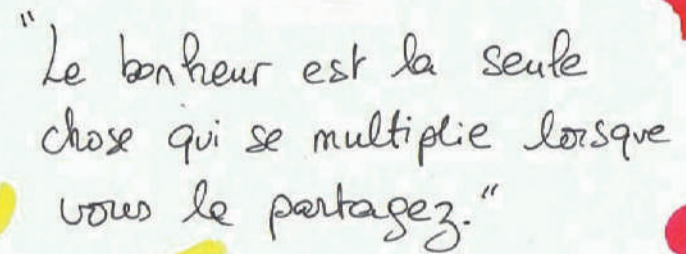 "Le bonheur est la seule
chose qui se multiplie lorsque
vous le partagez."